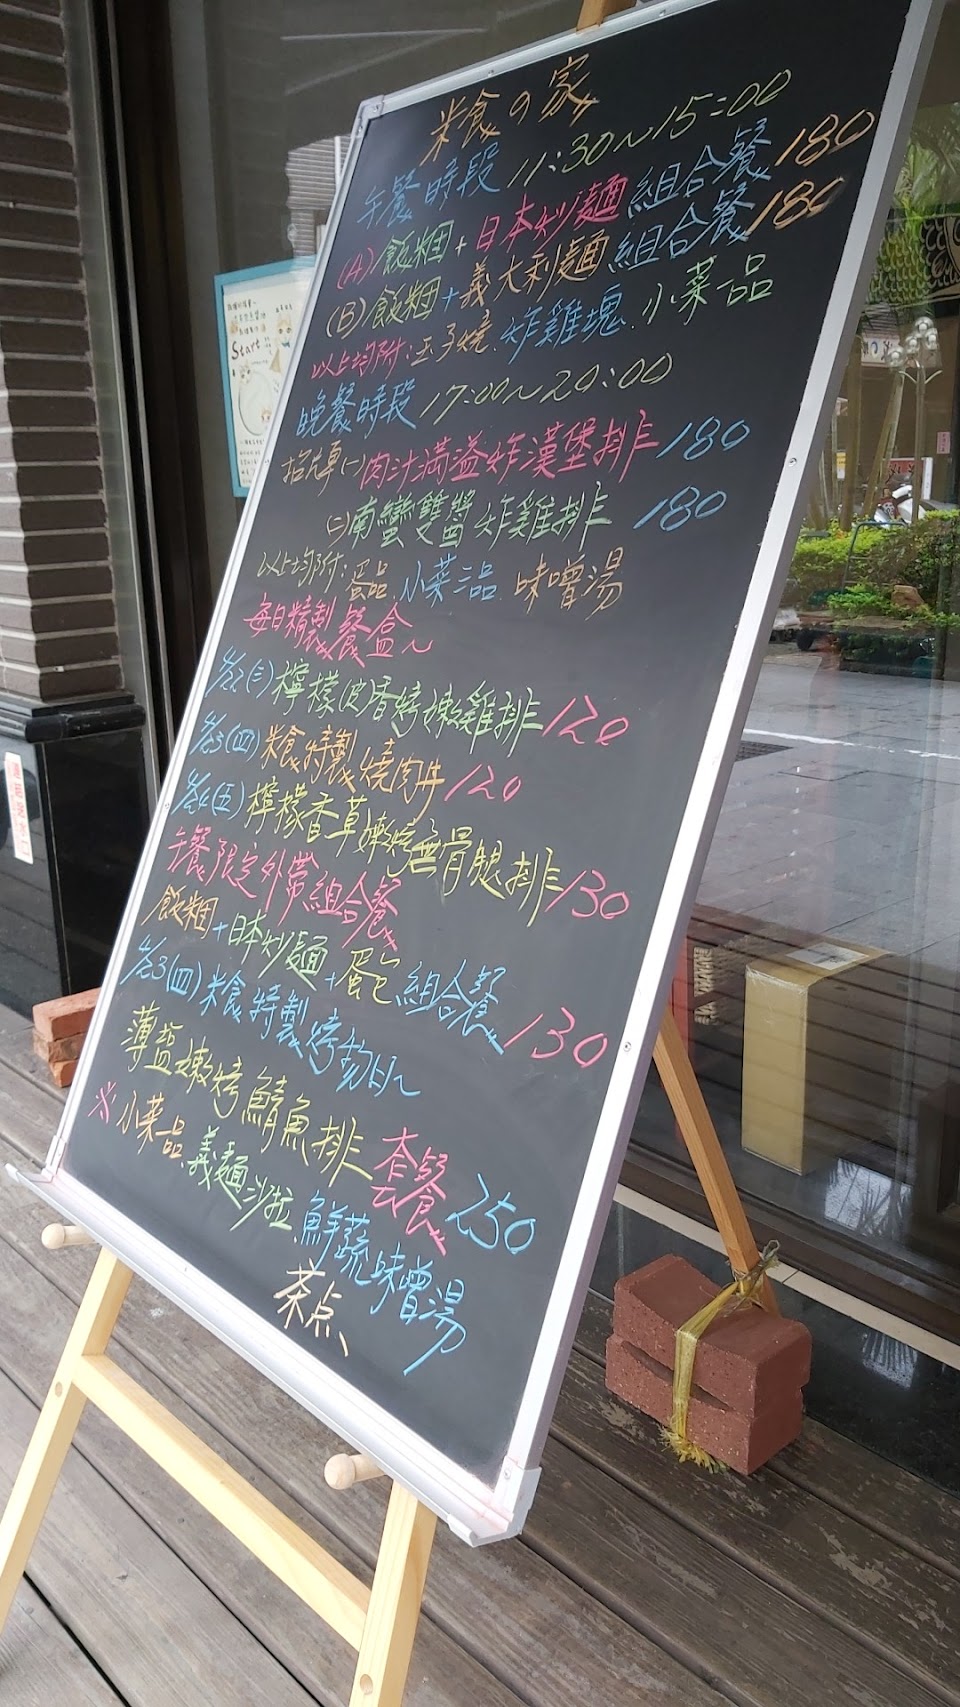 米食の家
午餐時段 11:30~15:00
(A)飯糰+日本炒麵組合餐180
(B)飯糰+義大利麵組合餐180
以上均附:玉子燒.炸雞塊.小菜一品
晚餐時段 17:00~20:00
招牌(一)肉汁滿溢炸漢堡排180
(二)南蠻雙醬炸雞排 180
以上均附:蛋品.小菜二品.味噌湯
每日精製餐盒~
4/22(三)檸檬皮香烤嫩雞排120
4/23(四)米食特製燒肉丼120
4/24(五)檸檬香草嫩烤無骨腿排130
午餐限定外帶組合餐
飯糰+日本炒麵+蛋包組合餐130
4/23(四)米食特製烤物日~
薄鹽嫩烤鯖魚排套餐250
※小菜一品.義麵沙拉.鮮蔬味噌湯
茶点、
Start